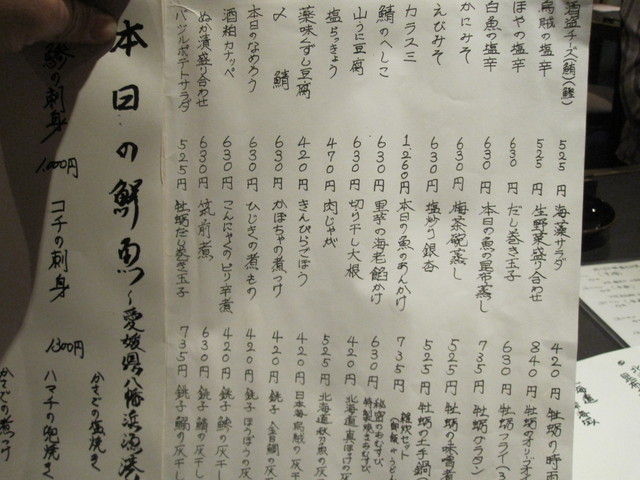 酒盗チーズ(鮪)(鰹)
525円
海藻サラダ
420円
牡蛎の時雨
烏賊の塩辛
525円
生野菜盛り合わせ
840円
牡蛎のオリーブオイ
ほやの塩辛
630円
だし巻き玉子
630円
牡蛎フライ(3
白魚の塩辛
630円
本日の魚の昆布蒸し
735円
牡蛎グラタン
かにみそ
630円
梅茶碗蒸し
525円
牡蛎の味噌煮
えびみそ
630円
塩炒り銀杏
525円
牡蛎の土手鍋(
カラスミ
1260円
本日の魚のあんかけ
735円
雑炊セット
鯖のへしこ
630円
里芋の海老餡かけ
630円
秘密のおむすび
特製焼きおむすび
山うに豆腐
630円
切り干し大根
420円
北海道真ほっけの灰
塩らっきょう
470円
肉じゃが
525円
薬味くずし豆腐
420円
きんぴらごぼう
420円
日本海烏賊の灰干
〆鯖
630円
かぼちゃの煮つけ
420円
銚子金目鯛の灰干
本日のなめろう
630円
ひじきの煮もの
420円
銚子ほうぼうの灰干
酒粕カナッペ
630円
こんにゃくのピリ辛煮
420円
銚子鯵の灰干し
ぬか漬盛り合わせ
630円
筑前煮
630円
銚子鯖の灰干し
バジルポテトサラダ
525円
牡蛎だし巻き玉子
735円
銚子鯛の灰干し
本日の鮮魚~愛媛県八幡浜漁港
かさごの塩焼き
鯵の刺身
1,000円
コチの刺身
1300円
ハマチの兜焼き
かさごの煮つけ